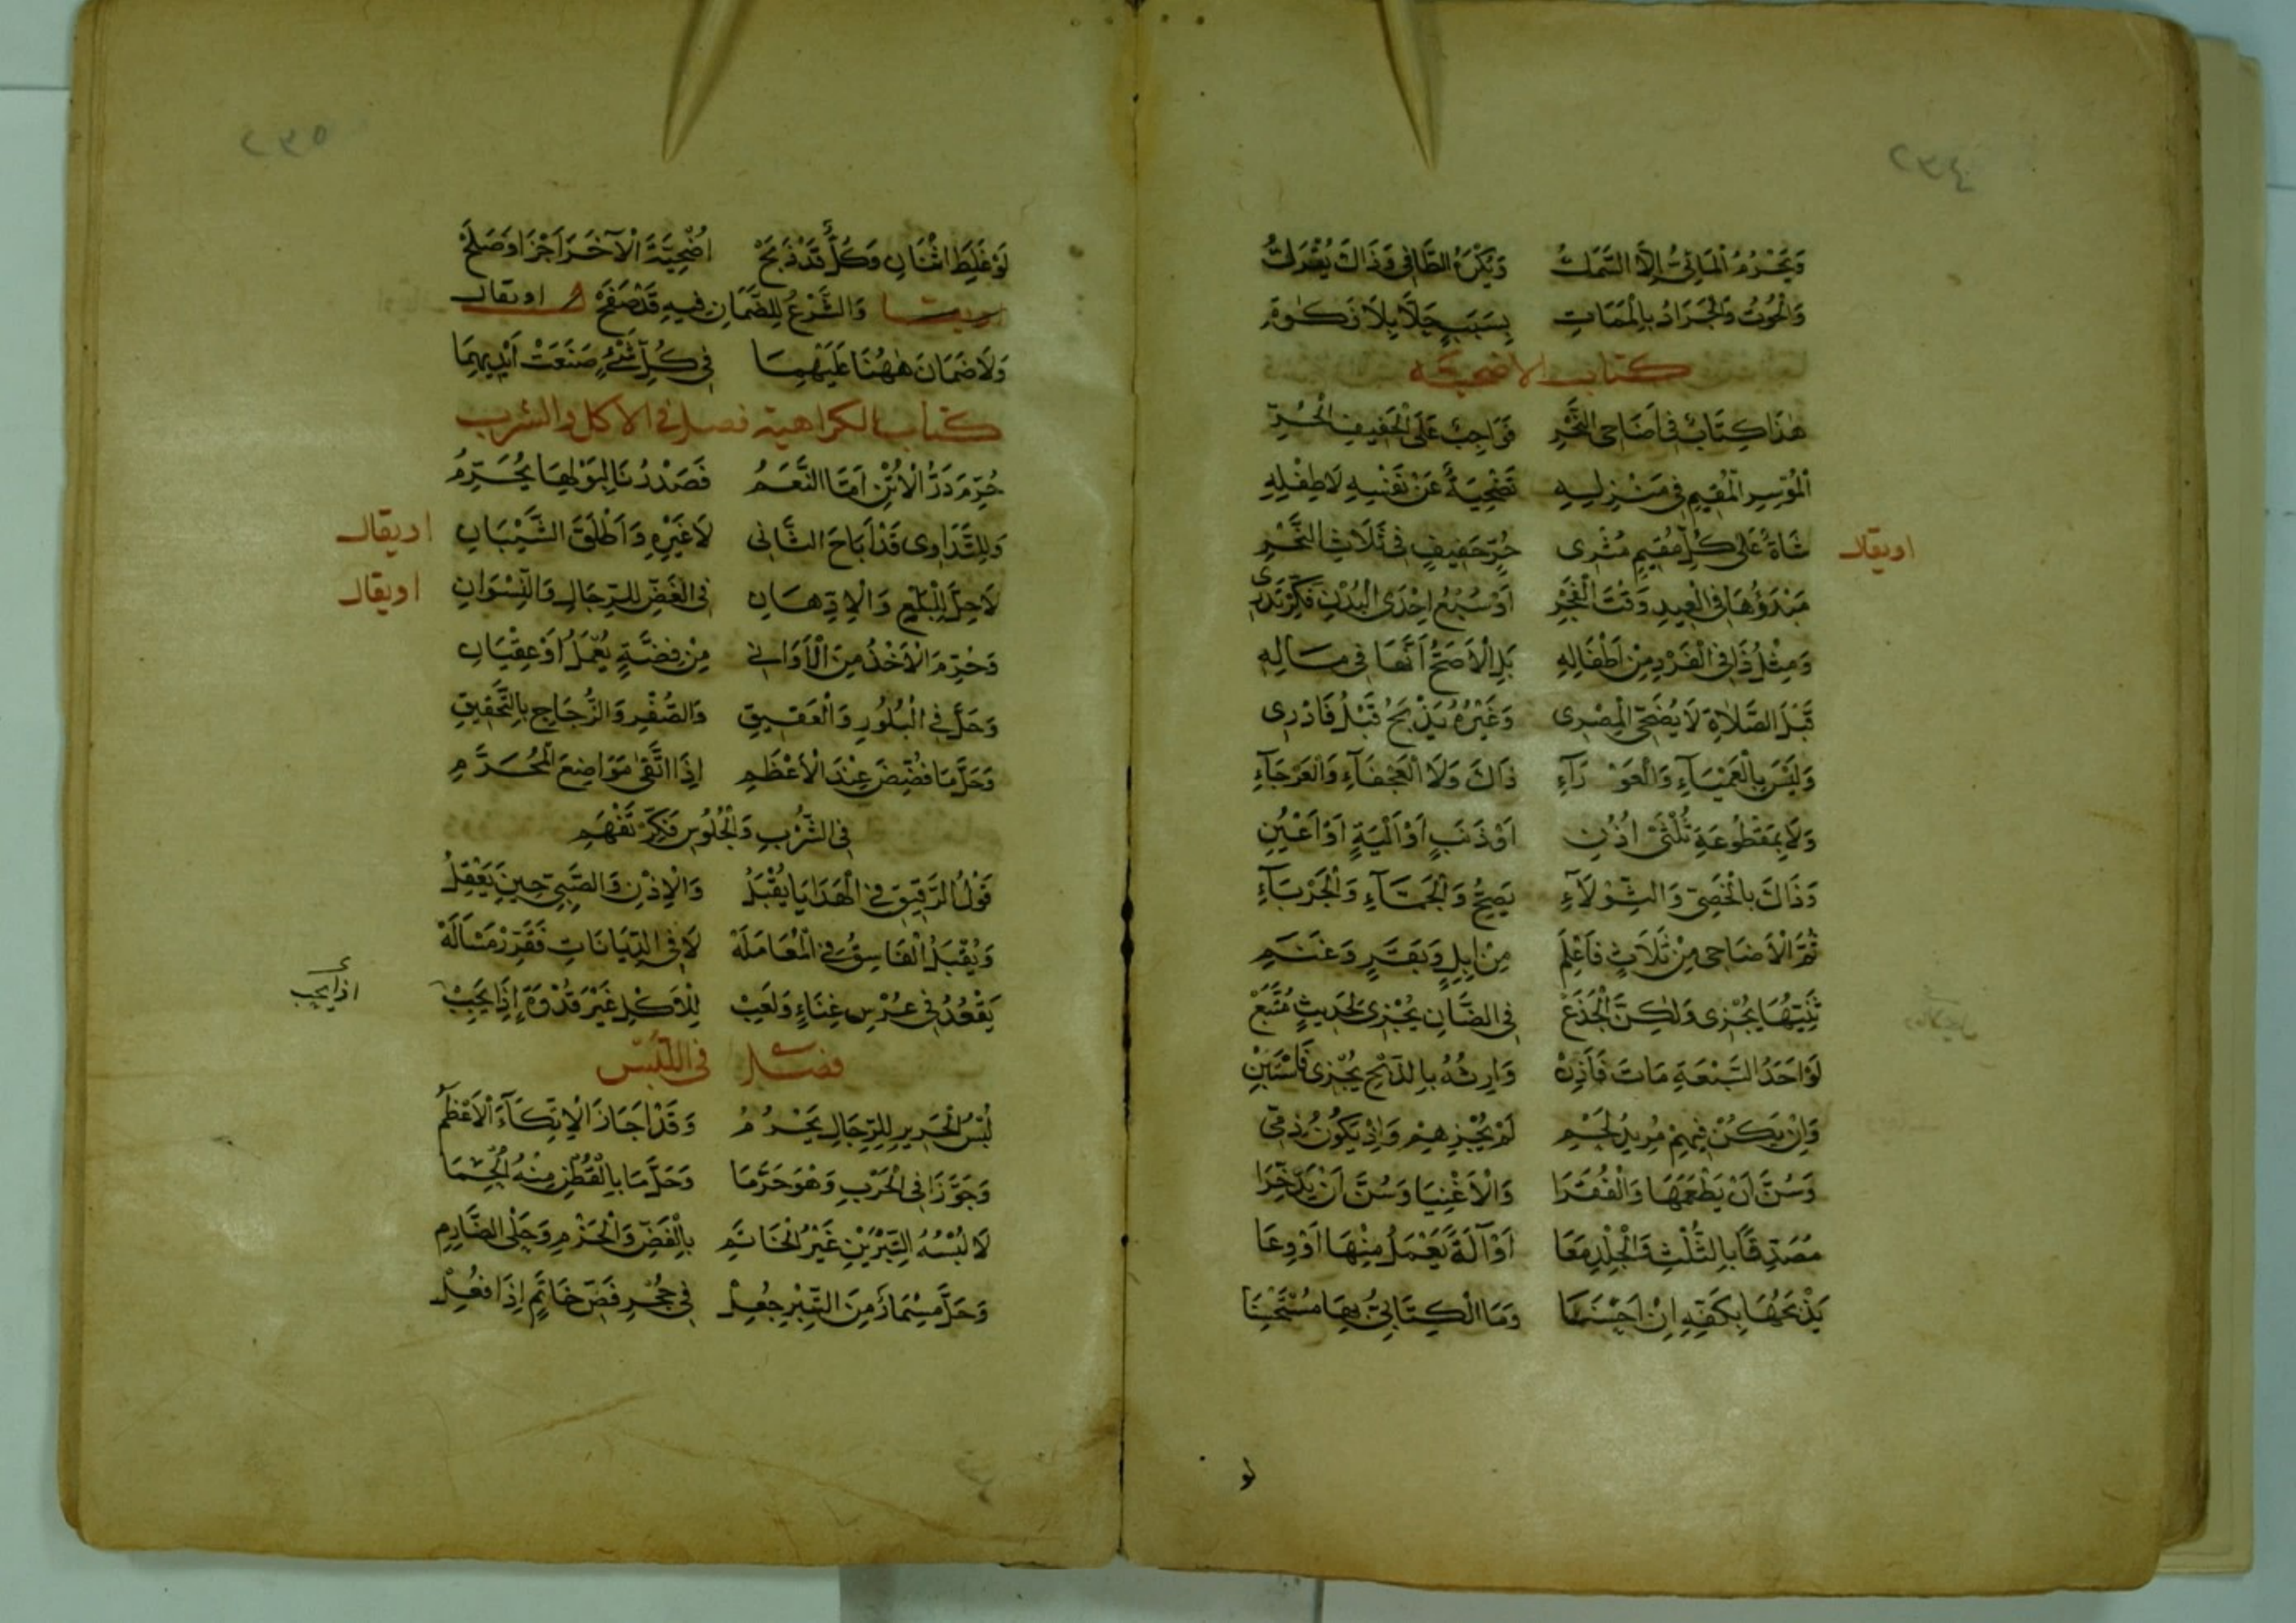 وَيَحْرُمُ الْمَائِيُّ إِلَّا السَّمَكُ وَيُكْرَهُ الطَّافِي وَذَاكَ يُتْرَكُ
وَالْحُوتُ وَالْجَرَادُ بِالْمَمَاتِ بِسَبَبٍ حَلَّا بِلَا ذَكٰوةِ
كتاب الاضحية
هٰذَا كِتَابٌ فِي اَضَاحِي النَّحْرِ فَوَاجِبٌ عَلَى الْحَنِيفِ الْحُرِّ
اَلْمُوسِرِ الْمُقِيمِ فِي مَنْزِلِهِ تَضْحِيَةٌ عَنْ نَفْسِهِ لَا طِفْلِهِ
اويقال
شَاةٌ عَلَى كُلِّ مُقِيمٍ مُثْرِى حُرٍّ حَنِيفٍ فِي ثَلَاثِ النَّحْرِ
مَبْدَؤُهَا فِي الْعِيدِ وَقْتَ الْفَجْرِ اَوْ سُبْعُ اِحْدَى الْبُدْنِ فَكِّرْ تَدْرِى
وَمِثْلُ ذَا فِي الْفَرْدِ مِنْ اَطْفَالِهِ بَلِ الْاَصَحُّ اَنَّهَا فِي مَالِهِ
قَبْلَ الصَّلَاةِ لَا يُضَحِّي الْمِصْرِى وَغَيْرُهُ يَذْبَحُ قَبْلُ فَادْرِى
وَلَيْسَ بِالْعَمْيَاءِ وَالْعَوْرَآءِ ذَاكَ وَلَا الْعَجْفَآءِ وَالْعَرْجَآءِ
وَلَا بِمَقْطُوعَةِ ثُلْثَيْ اُذُنِ اَوْ ذَنَبٍ اَوْ اَلْيَةٍ اَوْ اَعْيُنِ
وَذَاكَ بِالْخَصِيِّ وَالثَّوْلَآءِ يَصِحُّ وَالْجَمَّآءِ وَالْجَرْبَآءِ
ثُمَّ الْاَضَاحِي مِنْ ثَلَاثٍ فَاعْلَمِ مِنْ اِبِلٍ وَبَقَرٍ وَغَنَمِ
ثَنِيُّهَا يُجْزِى وَلٰكِنَّ الْجَذَعْ فِي الضَّانِ يُجْزِى لِحَدِيثٍ مُتَّبَعْ
لَوْ اَحَدُ السَّبْعَةِ مَاتَ فَاَذِنْ وَارِثُهُ بِالذَّبْحِ يُجْزِى فَاسْتَبِنْ
وَاِنْ يَكُنْ فِيهِمْ مُرِيدُ لَحْمِ لَمْ يُجْزِهِمْ وَاِذْ يَكُونُ ذِمِّي
وَسُنَّ اَنْ يَطْعَمَهَا وَالْفُقَرَا وَالْاَغْنِيَا وَسُنَّ اَنْ يَدَّخِرَا
مُصَدِّقًا بِالثُّلْثِ وَالْجِلْدِ مَعَا اَوْ آلَةً يَعْمَلُ مِنْهَا اَوْ وِعَا
يَذْبَحُهَا بِكَفِّهِ اِنْ اَحْسَنَا وَمَا الْكِتَابِيُّ بِهَا مُسْتَحْسَنَا
لو
لَوْ غَلِطَ اثْنَانِ وَكُلٌّ قَدْ ذَبَحْ اُضْحِيَّةَ الْآخَرِ اَجْزَا وَصَلَحْ
وَالشَّرْعُ لِلضَّمَانِ فِيهِ قَدْ صَفَحْ اويقال
وَلَا ضَمَانَ هٰهُنَا عَلَيْهِمَا فِي كُلِّ شَيْءٍ صَنَعَتْ اَيْدِيهِمَا
كتاب الكراهية فصل فى الاكل والشرب
حُرِّمَ دَرُّ الْاُتْنِ اَمَّا النَّعَمُ فَصَدْرُنَا لِبَوْلِهَا يُحَرِّمُ
وَلِلتَّدَاوِى قَدْ اَبَاحَ الثَّانِى لَا غَيْرِهِ وَاَطْلَقَ الشَّيْبَانِ اويقال
لَا حِلَّ لِلْبَلْعِ وَالْاِدِّهَانِ فِي الْفَضِّ لِلرِّجَالِ وَالنِّسْوَانِ اويقال
وَحُرِّمَ الْاَخْذُ مِنَ الْاَوَانِي مِنْ فِضَّةٍ يُعْمَلُ اَوْ عِقْيَانِ
وَحَلَّ فِي الْبُلُورِ وَالْعَقِيقِ وَالصُّفْرِ وَالزُّجَاجِ بِالتَّحْقِيقِ
وَحَلَّ مَا فُضِّضَ عِنْدَ الْاَعْظَمِ اِذَا اتَّقٰى مَوَاضِعَ الْمُحَرَّمِ
فِي الشُّرْبِ وَالْجُلُوسِ فَكِّرْ تَفْهَمِ
قَوْلُ الرَّقِيقِ فِي الْهَدَايَا يُقْبَلُ وَالْاِذْنِ وَالصَّبِيِّ حِينَ يَعْقِلُ
وَيُقْبَلُ الْفَاسِقُ فِي الْمُعَامَلَهْ لَا فِي الدِّيَانَاتِ فَقَرِّرْ مَسْاَلَهْ
يَقْعُدُ فِي عُرْسٍ غِنَاءٍ وَلَعِبْ لِلْاَكْلِ غَيْرُ قُدْوَةٍ اِذَا يَجِبْ
اذ ايجب
فصل فى اللبس
لُبْسُ الْحَرِيرِ لِلرِّجَالِ يَحْرُمُ وَقَدْ اَجَازَ الْاِتِّكَآءَ الْاَعْظَمُ
وَجَوَّزَا فِي الْحَرْبِ وَهْوَ حَرَّمَا وَحَلَّ مَا بِالْقُطْنِ مِنْهُ اُلْحِمَا
لَا لُبْسُهُ التِّبْرَيْنِ غَيْرُ الْخَاتَمِ بِالْفَضِّ وَالْحَزْمِ وَحَلْىِ الصَّارِمِ
وَحَلَّ مِسْمَارٌ مِنَ التِّبْرِ جُعِلْ فِي حَجَرِ فَصِّ خَاتَمٍ اِذَا فُعِلْ